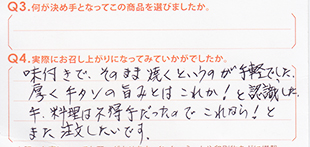 Q3.何が決め手となってこの商品を選びましたか。
Q4.実際にお召し上がりになってみていかがでしたか。
味付きで、そのまま焼くというのが手軽でした。
厚く牛タンの旨みとはこれか！と認識した。
牛料理は不得手だったのでこれなら！と
また注文したいです。